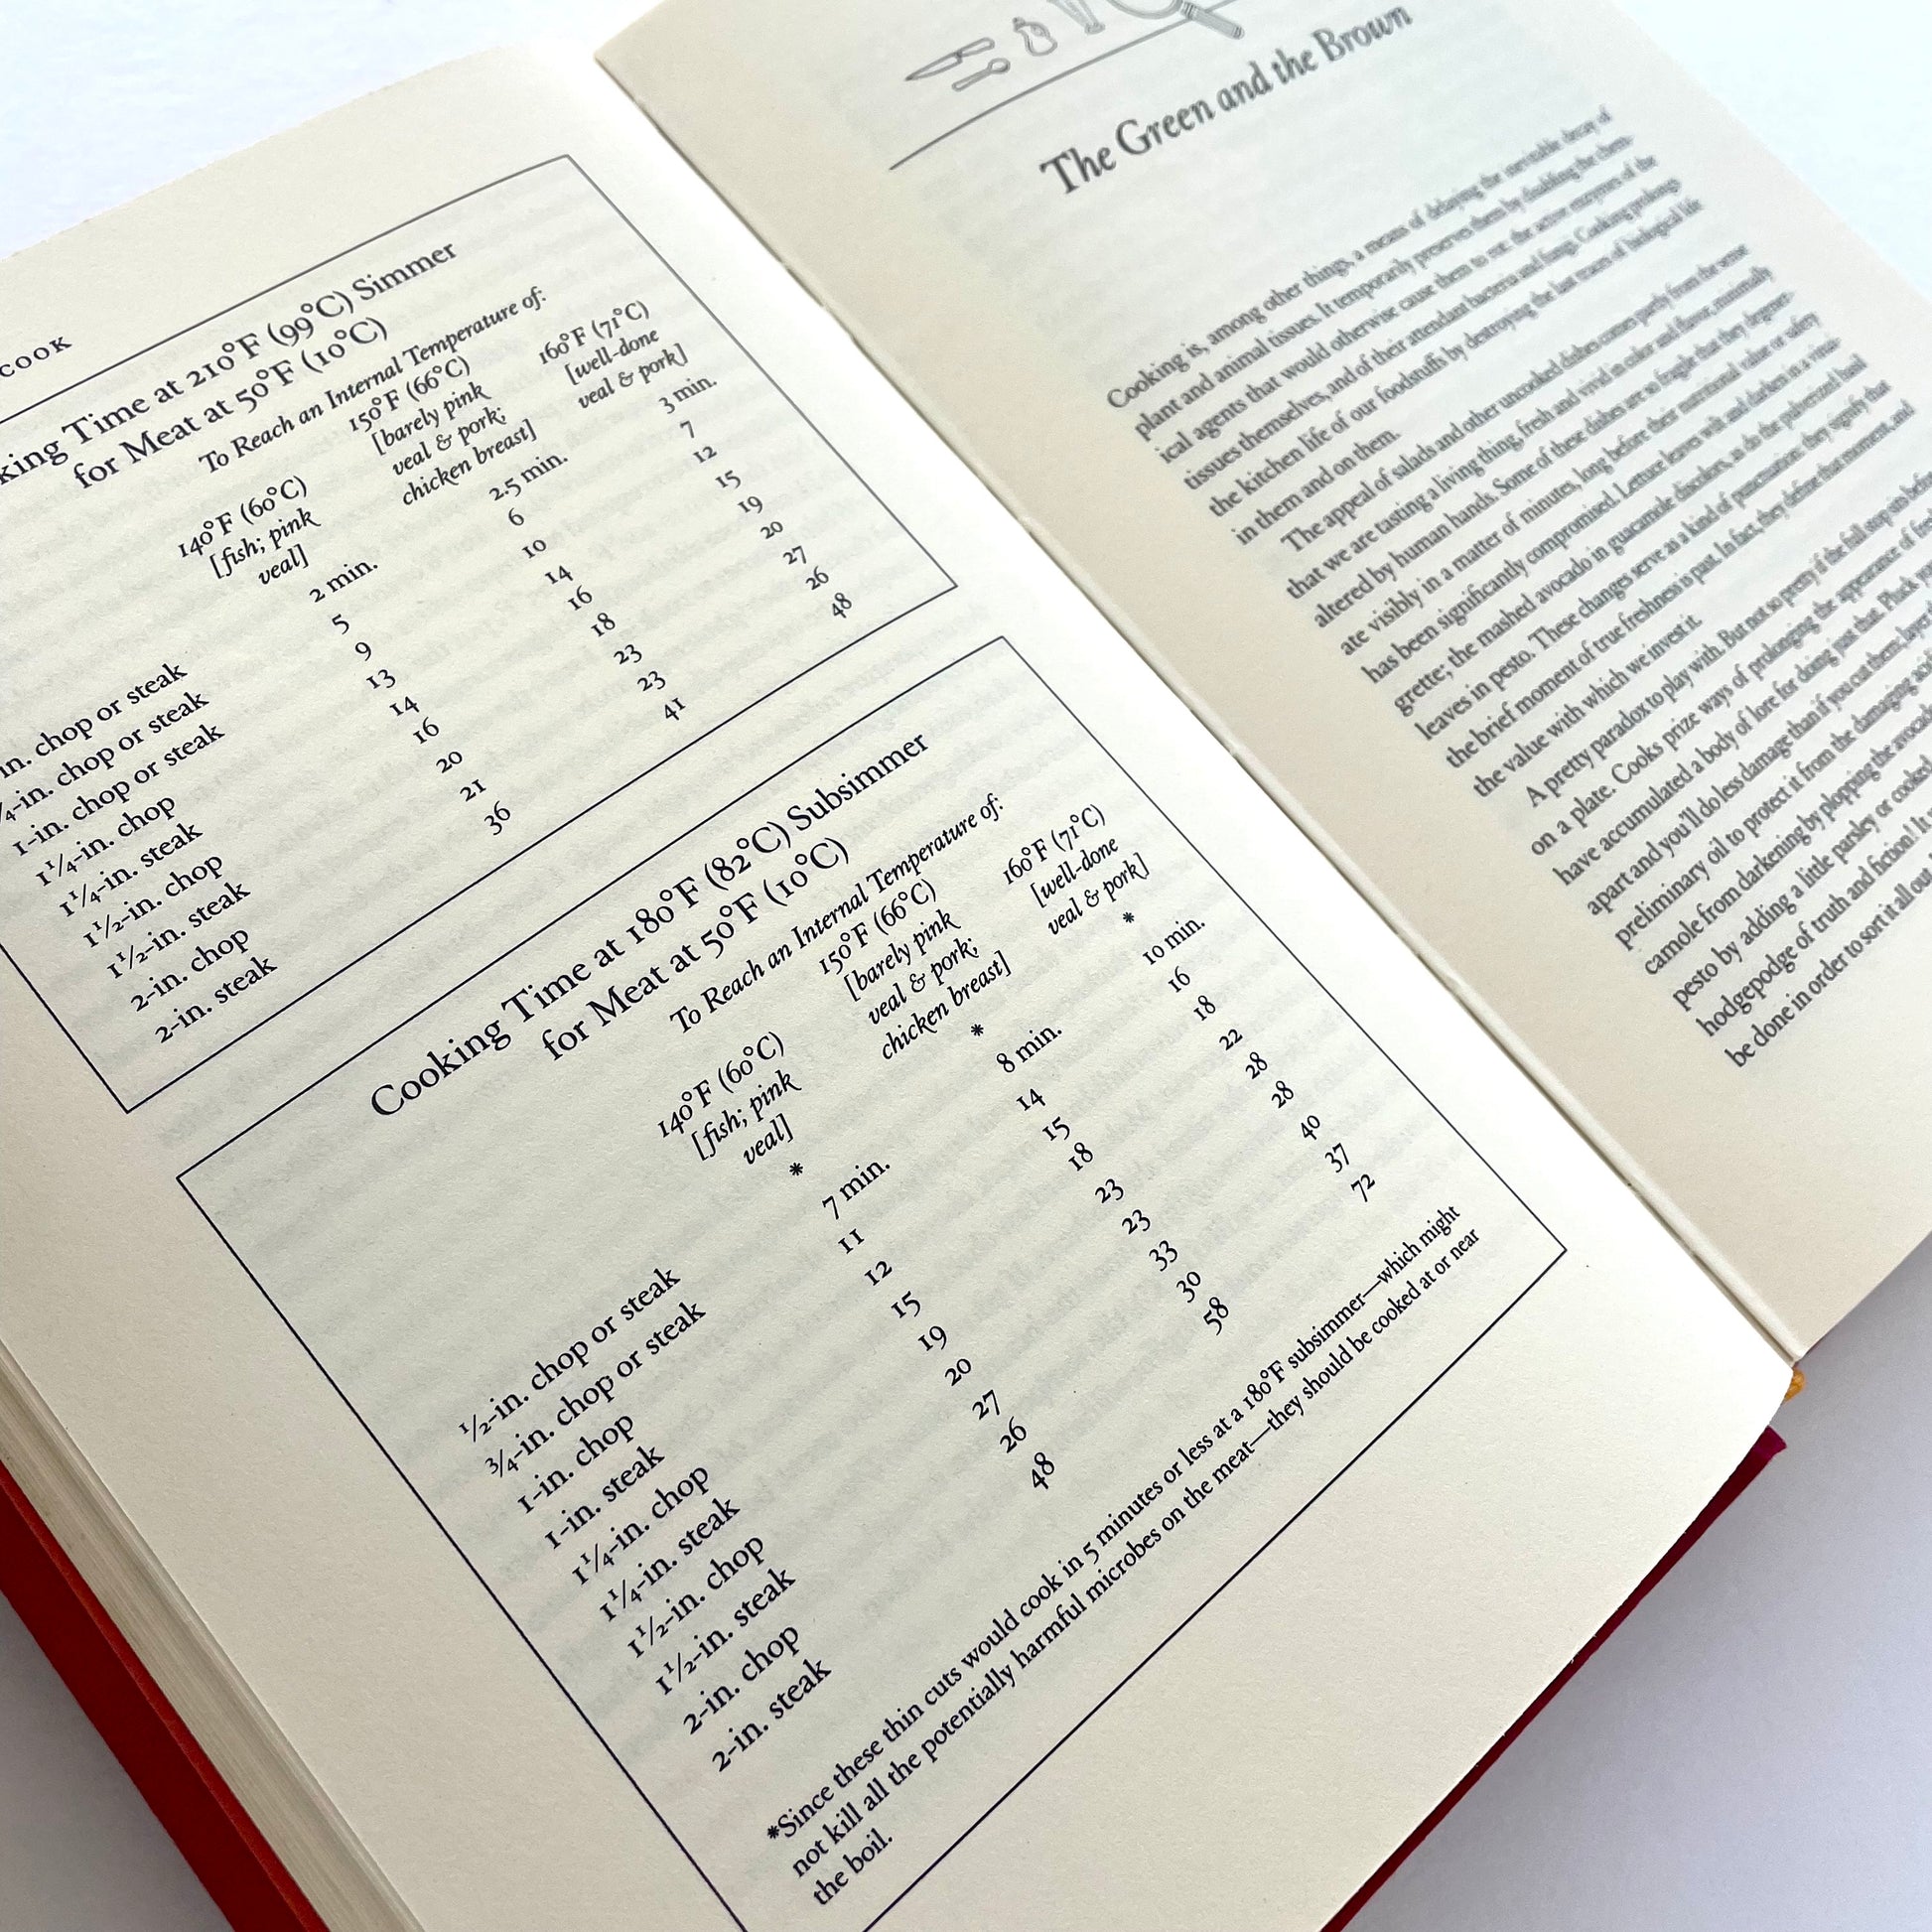 COOK
king Time at 210°F (99°C) Simmer
for Meat at 50°F (10°C)
To Reach an Internal Temperature of:
140°F (60°C) 150°F (66°C) 160°F (71°C)
[fish; pink [barely pink [well-done
veal] veal & pork; veal & pork]
chicken breast]
in. chop or steak 2 min. 2.5 min. 3 min.
/4-in. chop or steak 5 6 7
1-in. chop or steak 9 10 12
1 1/4-in. chop 13 14 15
1 1/4-in. steak 14 16 19
1 1/2-in. chop 16 18 20
1 1/2-in. steak 20 23 27
2-in. chop 21 23 26
2-in. steak 36 41 48
Cooking Time at 180°F (82°C) Subsimmer
for Meat at 50°F (10°C)
To Reach an Internal Temperature of:
140°F (60°C) 150°F (66°C) 160°F (71°C)
[fish; pink [barely pink [well-done
veal] veal & pork; veal & pork]
chicken breast]
1/2-in. chop or steak * * *
3/4-in. chop or steak 7 min. 8 min. 10 min.
1-in. chop 11 14 16
1-in. steak 12 15 18
1 1/4-in. chop 15 18 22
1 1/4-in. steak 19 23 28
1 1/2-in. chop 20 23 28
1 1/2-in. steak 27 33 40
2-in. chop 26 30 37
2-in. steak 48 58 72
*Since these thin cuts would cook in 5 minutes or less at a 180°F subsimmer—which might
not kill all the potentially harmful microbes on the meat—they should be cooked at or near
the boil.
The Green and the Brown
Cooking is, among other things, a means of delaying the inevitable decay of
plant and animal tissues. It temporarily preserves them by disabling the chem-
ical agents that would otherwise cause them to rot: the active enzymes of the
tissues themselves, and of their attendant bacteria and fungi. Cooking prolongs
the kitchen life of our foodstuffs by destroying the last traces of biological life
in them and on them.
The appeal of salads and other uncooked dishes comes partly from the sense
that we are tasting a living thing, fresh and vivid in color and flavor, minimally
altered by human hands. Some of these dishes are so fragile that they degener-
ate visibly in a matter of minutes, long before their nutritional value or safety
has been significantly compromised. Lettuce leaves wilt and darken in a vinai-
grette; the mashed avocado in guacamole discolors, as do the pulverized basil
leaves in pesto. These changes serve as a kind of punctuation: they signify that
the brief moment of true freshness is past. In fact, they define that moment, and
the value with which we invest it.
A pretty paradox to play with. But not so pretty if the full stop sets in before
on a plate. Cooks prize ways of prolonging the appearance of
have accumulated a body of lore for doing just that. Pluck
apart and you'll do less damage than if you cut them, layer
preliminary oil to protect it from the damaging
camole from darkening by plopping the
pesto by adding a little parsley or cooked
hodgepodge of truth and fiction! It
be done in order to sort it all out